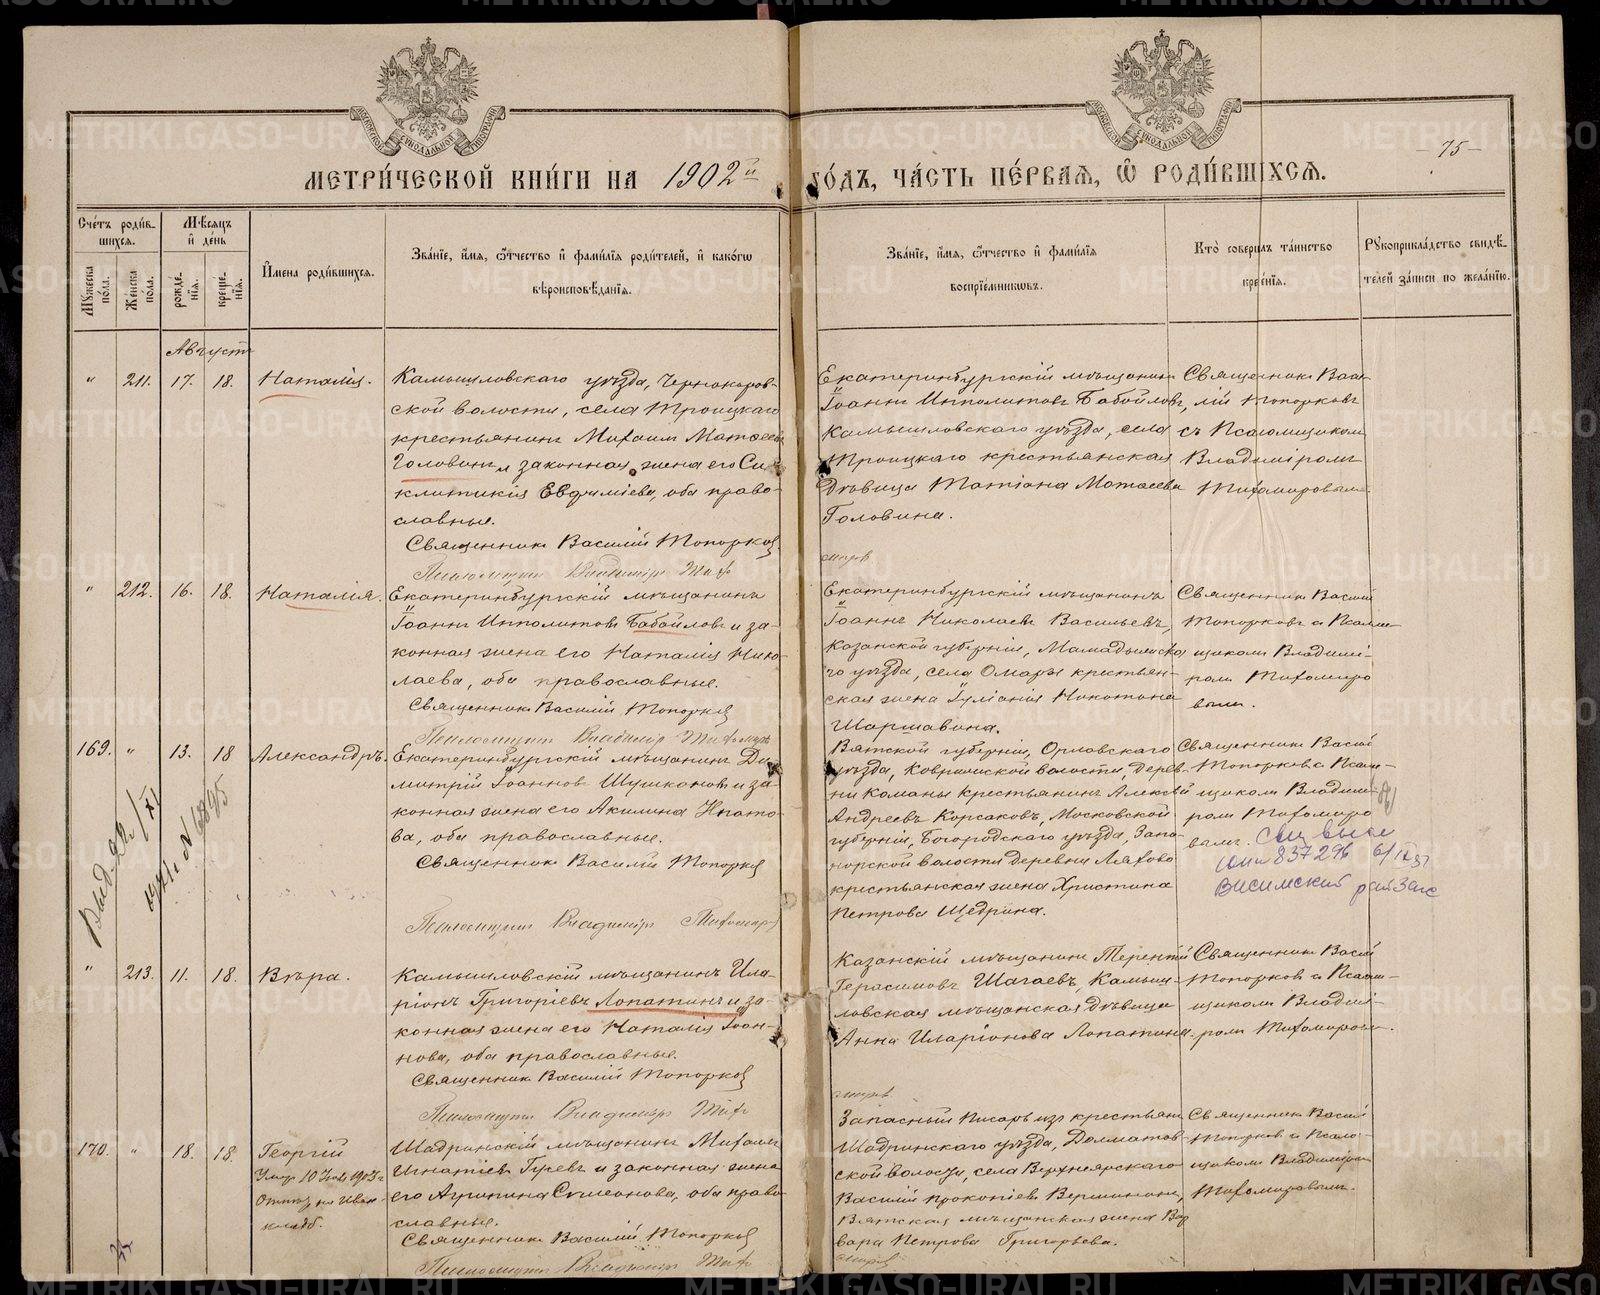 МЕТРИ́ЧЕСКОЙ КНИ́ГИ НА 1902й ГО́ДЪ, ЧА́СТЬ ПЕ́РВАѦ, Ѡ РОДИ́ВШИХСѦ.
75
Сче́тъ роди́в-
шихсѧ.
Мѣ́сѧцъ
и де́нь
Мꙋжеска
пола.
Же́нска
по́ла.
рожде́-
нїѧ.
креще́-
нїѧ.
И҆мена роди́вшихсѧ.
Зва́нїе, и҆́мѧ, ѻ҆́тчество и҆ фами́лїѧ роди́телей, и҆ како́гѡ
вѣроисповѣ́данїѧ.
Зва́нїе, и҆́мѧ, ѻ҆́тчество и҆ фами́лїѧ
воспрїе́мникѡвъ.
Кто̀ соверши́лъ та́инство
креще́нїѧ.
Рꙋкоприкла́дство свидѣ́-
телей за́писи по жела́нїю.
Августъ
" 211. 17. 18. Наталія.
Камышловскаго уѣзда, Чернокоров-
ской волости, села Троицкаго
крестьянинъ Михаилъ Матѳеевъ
Головинъ и законная жена его Син-
клитикія Евфиміева, оба право-
славные.
Священник Василій Топорков
Псаломщик Владимір Тихомиров
Екатеринбургскій мѣщанинъ
Іоаннъ Ипполитовъ Бабайловъ,
Камышловскаго уѣзда, села
Троицкаго крестьянская
дѣвица Татіана Матѳеева
Головина.
Священник Васи-
лій Топорковъ
съ Псаломщиком
Владиміромъ
Тихомировым.
" 212. 16. 18. Наталія.
Екатеринбургскій мѣщанинъ
Іоаннъ Ипполитовъ Бабайловъ и за-
конная жена его Наталія Нико-
лаева, оба православные.
Священник Василій Топорков
Псаломщик Владимір Тихомиров
Екатеринбургскій мѣщанинъ
Іоаннъ Николаевъ Васильевъ,
Казанской губерніи, Мамадышска-
го уѣзда, села Омары крестьян-
ская жена Іуліанія
Шаршавина.
Священник Василій
Топорковъ с Псалом-
щиком Владимі-
ром Тихомиро-
вым.
169. " 13. 18 Александръ.
Екатеринбургскій мѣщанинъ Ди-
митрій Іоанновъ и за-
конная жена его Акилина Ипато-
ва, оба православные.
Священник Василій Топорков
Псаломщик Владимір Тихомиров
Вятской губерніи, Орловскаго
уѣзда, волости, дерев-
ни крестьянинъ Алексѣй
Андреевъ Корсаковъ, Московской
губерніи, Богородскаго уѣзда, Запо-
норской волости деревни Ляхово
крестьянская жена Христина
Петрова Щедрина.
Священник Василій
Топорков с Псалом-
щиком Владимі-
ром Тихомиро-
вым.
837296
Висимский райзагс
Выд. 22/XI
" 213. 11. 18. Вѣра.
Камышловскій мѣщанинъ Ила-
ріонъ Григоріевъ Лопатинъ и за-
конная жена его Наталія Іоан-
нова, оба православные.
Священник Василій Топорков
Псаломщик Владимір Тихомиров
Казанскій мѣщанин Терентій
Герасимовъ Шагаевъ, Камыш-
ловская мѣщанская дѣвица
Анна Иларіонова Лопатина.
Священник Васил
Топорков с Псалом-
щиком Владимі-
ром Тихомиров.
170. " 18. 18. Георгій
Умер 10 1903 г.
Шадринскій мѣщанинъ Михаилъ
Игнатіевъ Гуревъ и законная жена
его Агрипина Симеонова, оба право-
славные.
Священник Василій Топорков
Псаломщик Владимір Тихомиров
Запасный писарь из крестьян
Шадринскаго уѣзда, Долматов-
ской волости, села Верхнеярскаго
Василій Прокопіев Вершинин,
Вятская мѣщанская жена Вар-
вара Петрова Григорьева.
Священник Васил
Топорков с Псало-
щиком Владиміром
Тихомировым.
METRIKI.GASO-URAL.RU